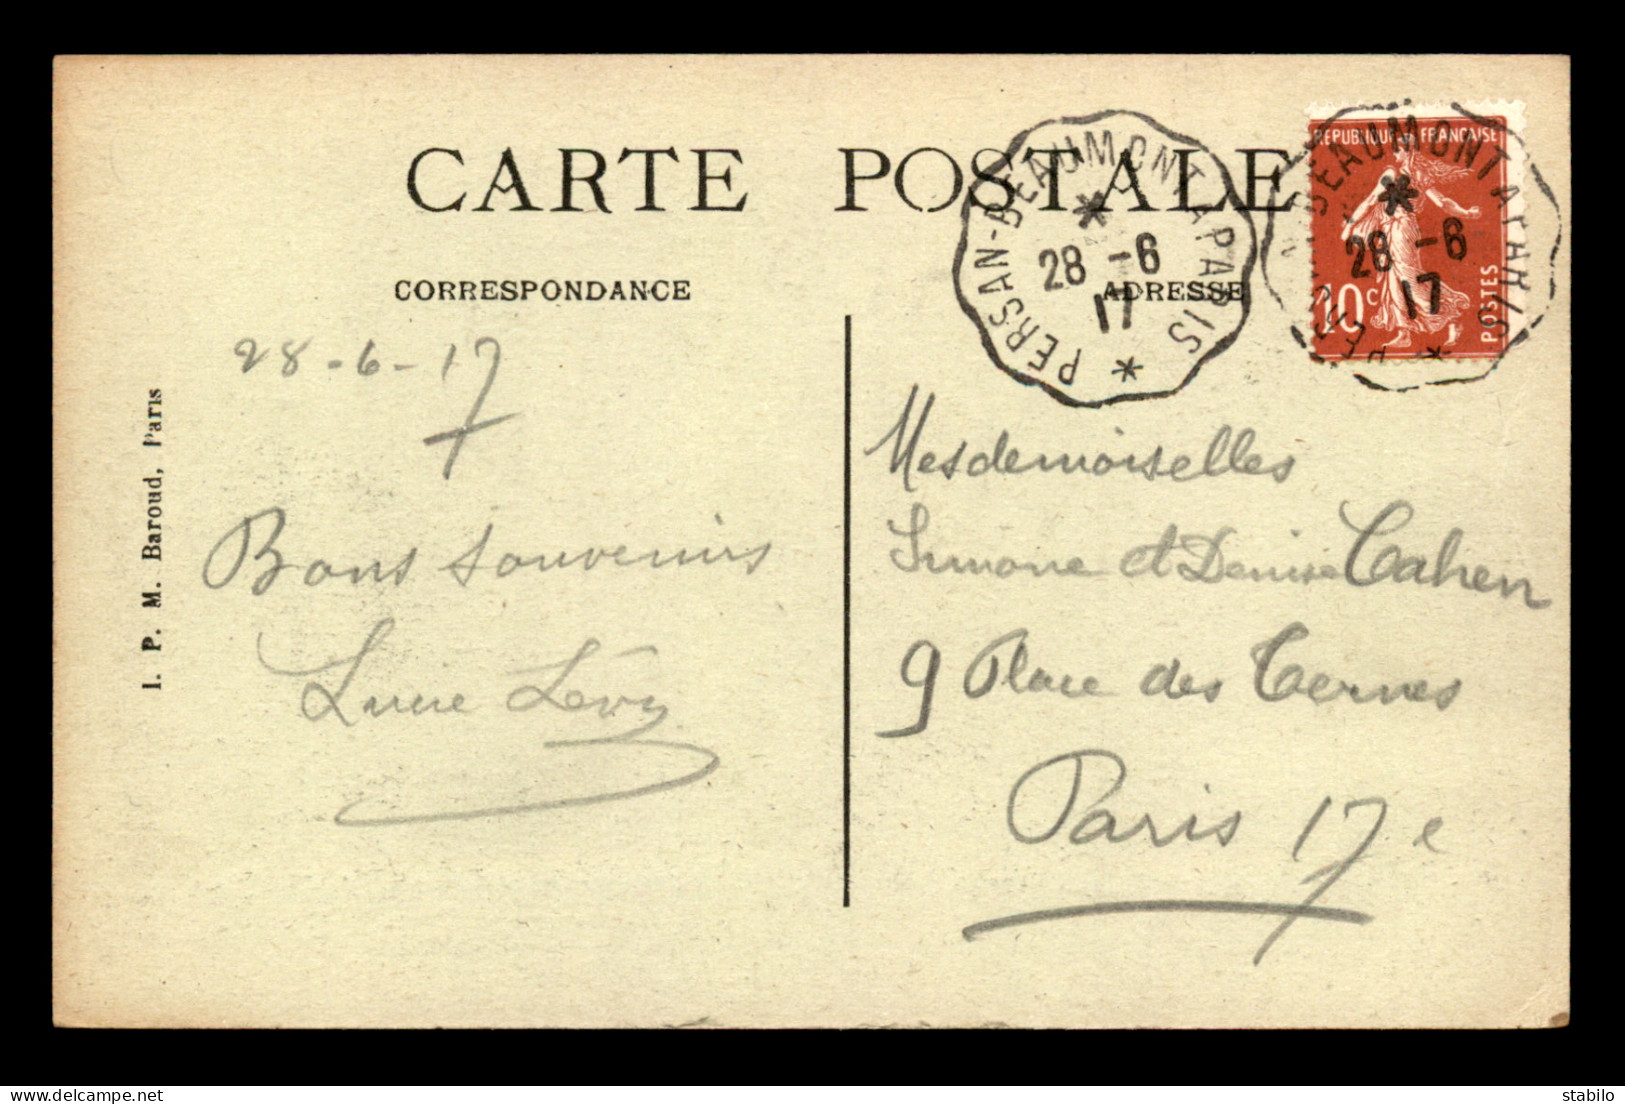 CARTE POSTALE
CORRESPONDANCE
ADRESSE
PERSAN-BEAUMONT A PARIS
28 -6
17
REPUBLIQUE FRANÇAISE
10c
POSTES
PERSAN-BEAUMONT A PARIS
28 -6
17
28-6-17
Bons souvenirs
Lucie Lévy
Mesdemoiselles
Simone et Denise Cahen
9 Place des Ternes
Paris 17e
I. P. M. Baroud, Paris
stabilo